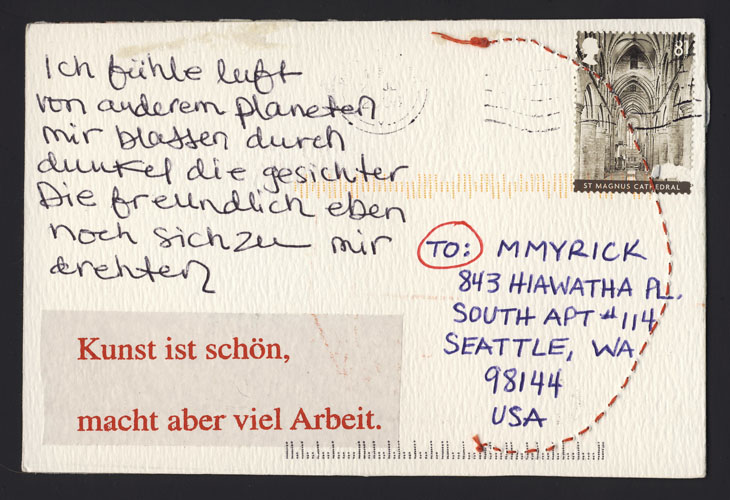 Ich fühle luft
von anderem planeten
mir blassen durch
dunkel die gesichter
Die freundlich eben
noch sich zu mir
drehten
Kunst ist schön,
macht aber viel Arbeit.
81
ST MAGNUS CATHEDRAL
TO: MMYRICK
843 HIAWATHA PL.
SOUTH APT #114
SEATTLE, WA
98144
USA